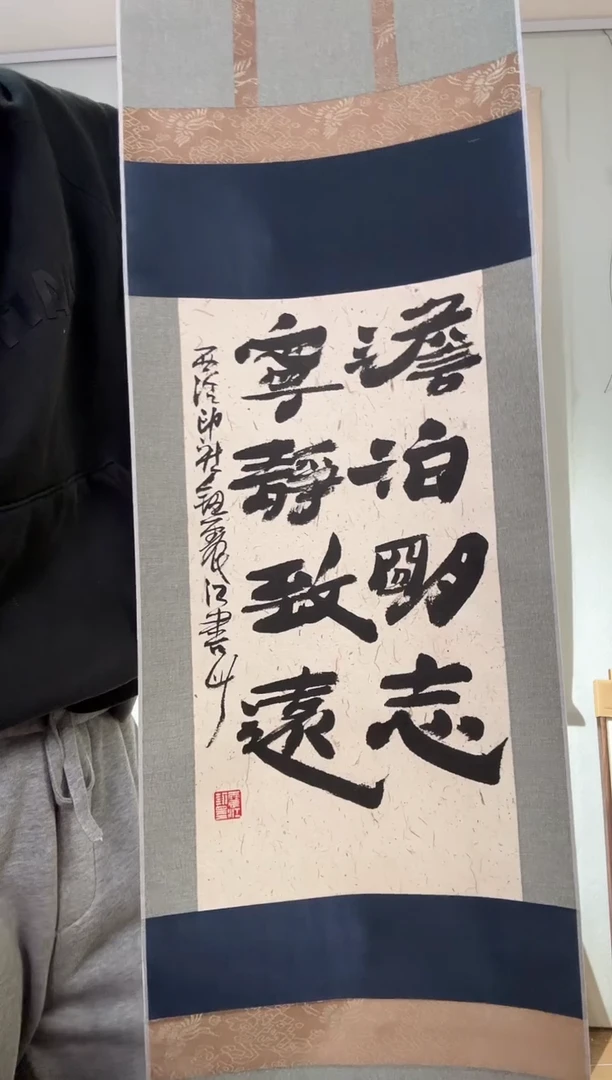 澹泊明志
寧靜致遠
西泠印社鍾義江書